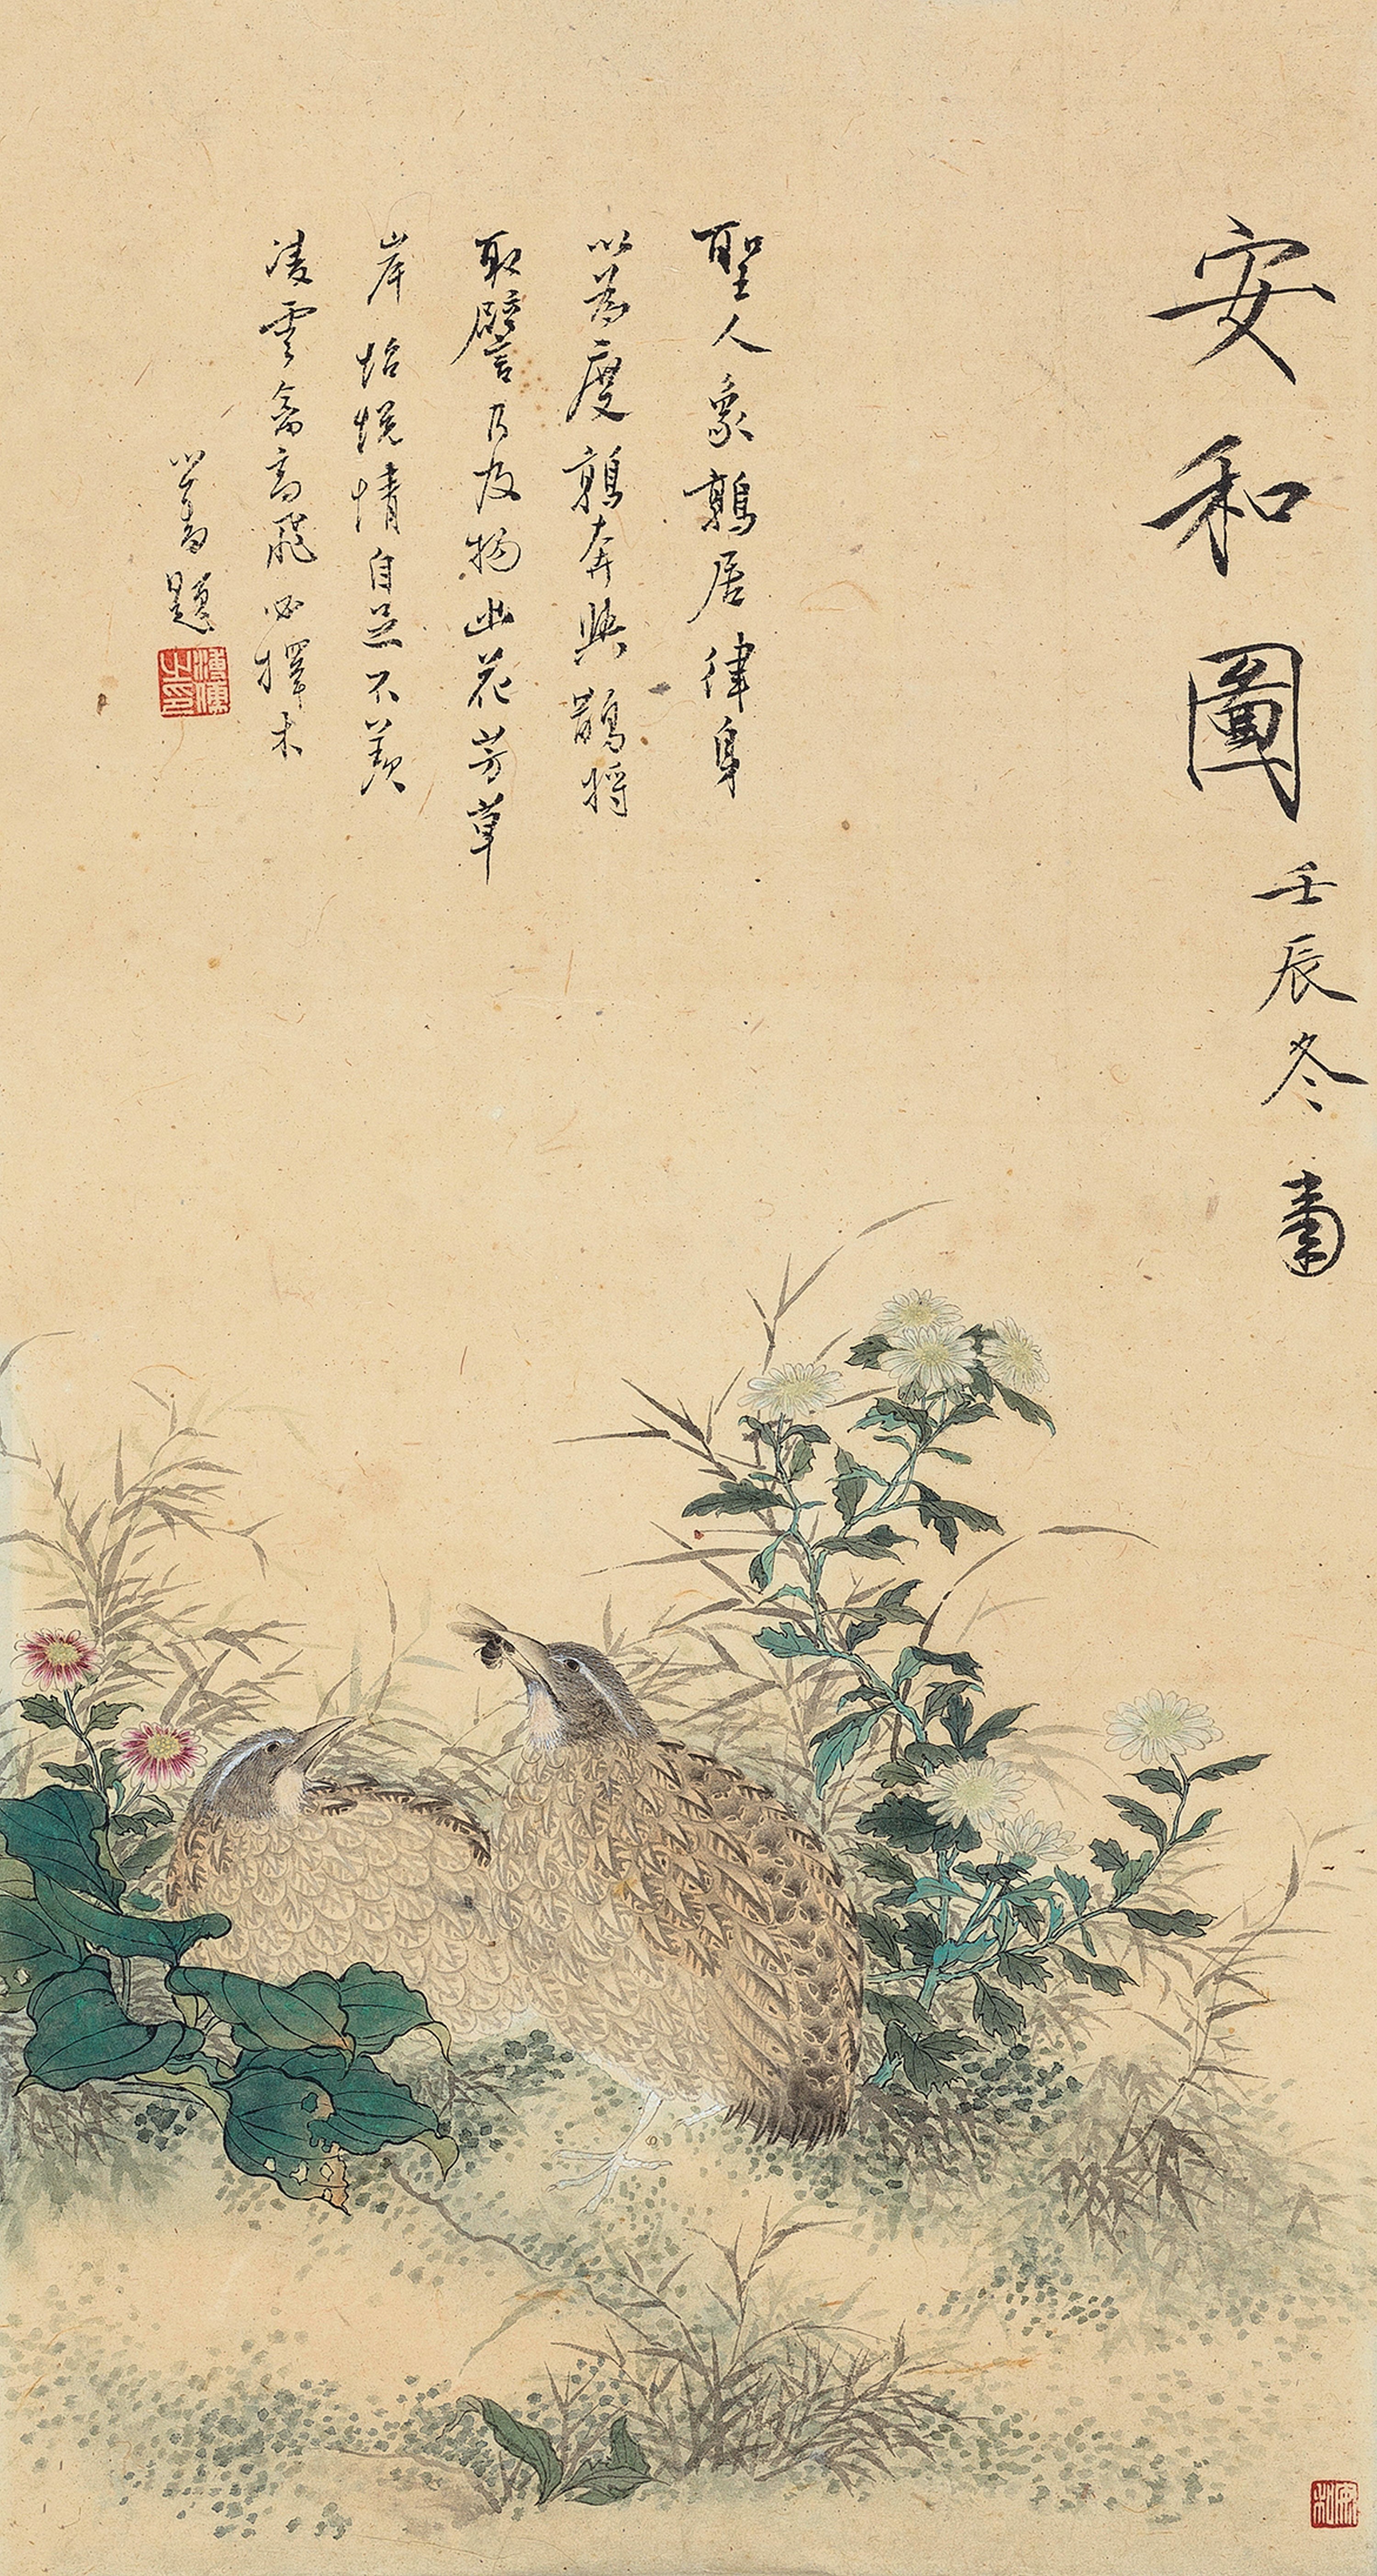 安和圖
壬辰冬
聖人象鶉居律身
以為度鶉奔與鵲將
取譬乃及物幽花芳草
岸怡悅情自足不羨
凌雲禽高飛必擇木
心畬題
溥儒之印